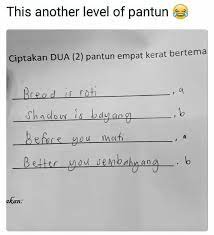 This another level of pantun 😂
Ciptakan DUA (2) pantun empat kerat bertema
Bread is roti , a
Shadow is bayang , b
Before you mati , a
Better you sembahyang . b
akan: